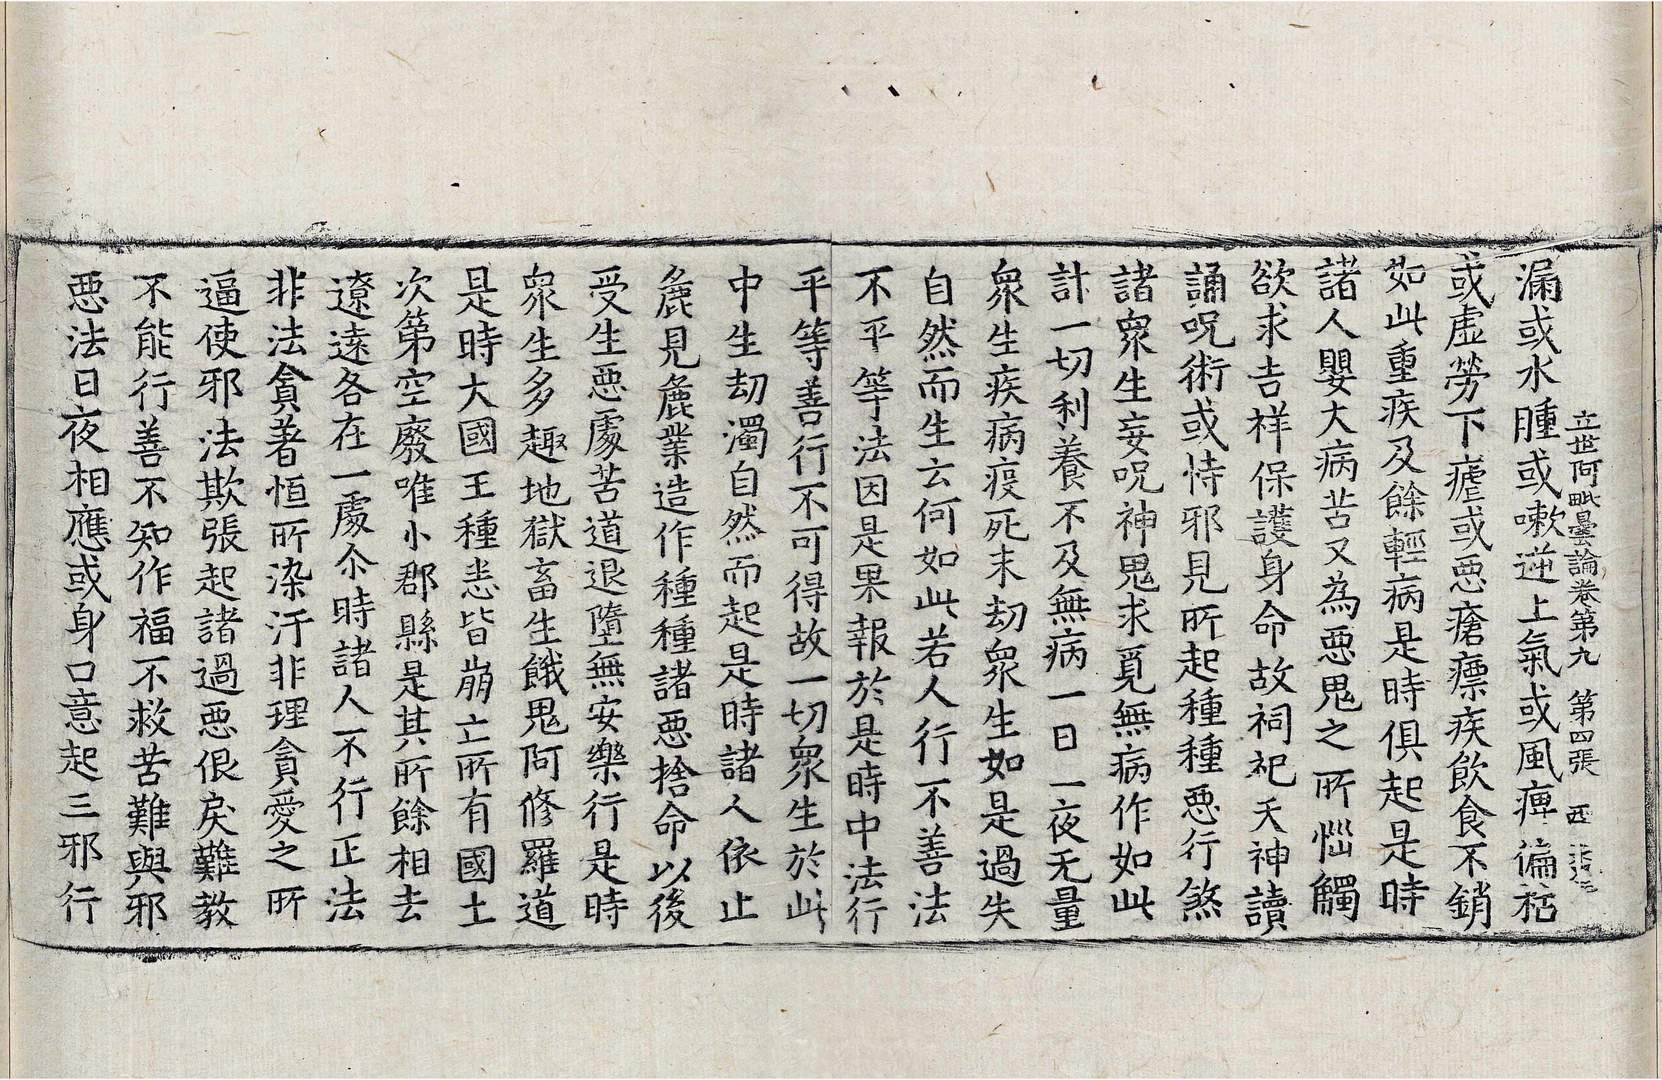 立世阿毗曇論卷第九 第四張 西
漏或水腫或嗽逆上氣或風痺偏枯
或虛勞下瘧或惡瘡瘭疾飲食不銷
如此重疾及餘輕病是時俱起是時
諸人嬰大病苦又為惡鬼之所惱觸
欲求吉祥保護身命故祠祀天神讀
誦呪術或恃邪見所起種種惡行煞
諸衆生妄呪神鬼求覓無病作如此
計一切利養不及無病一日一夜无量
衆生疾病疫死末劫衆生如是過失
自然而生云何如此若人行不善法
不平等法因是果報於是時中法行
平等善行不可得故一切衆生於此
中生劫濁自然而起是時諸人依止
麁見麁業造作種種諸惡捨命以後
受生惡處苦道退墮無安樂行是時
衆生多趣地獄畜生餓鬼阿修羅道
是時大國王種悉皆崩亡所有國土
次第空廢唯小郡縣是其所餘相去
遼遠各在一處尒時諸人不行正法
非法貪著恒所染汙非理貪愛之所
逼使邪法欺張起諸過惡佷戾難教
不能行善不知作福不救苦難與邪
惡法日夜相應或身口意起三邪行